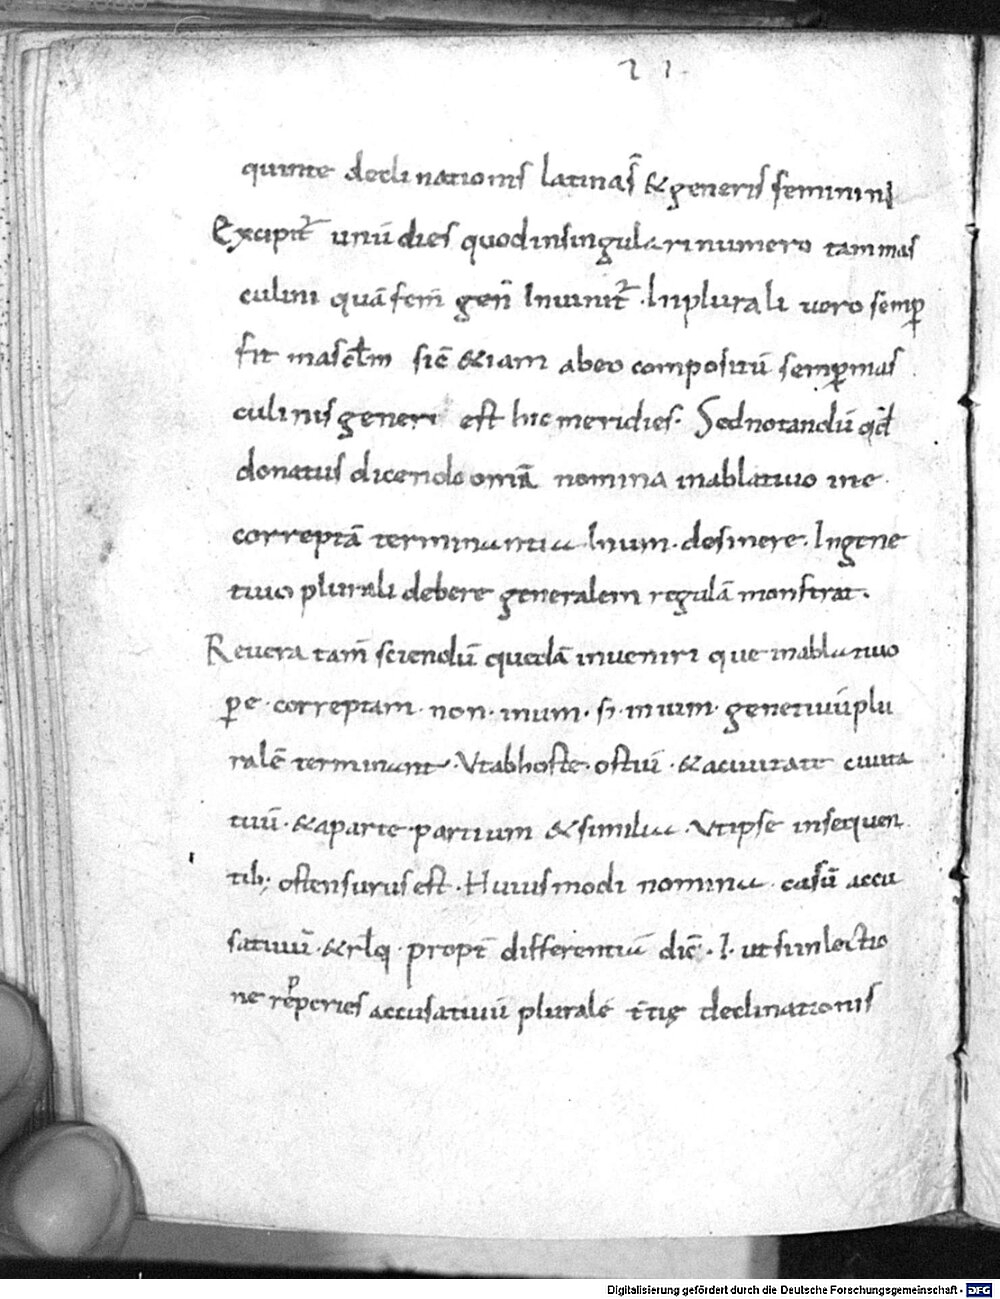 21.
quinte declinationis latinas̄ & generis feminini
Excipit᷒ unū dies quod in singulari numero tam mas
culini quā fem̄ geñ Inuenit᷒ · In plurali uero semꝑ
fit mascl̄m sic̄ &iam ab eo compositū semꝑ mas
culinis generi est hic meridies · Sed notandū qđ
donatus dicendo om̄ia nomina in ablatiuo in e ·
correptā terminantia · In um · desinere · In gene
tiuo plurali debere generalem regulā monstrat ·
Reuera tam̄ sciendū quedā inueniri que in ablatiuo
ꝑ e · correptam · non · in um · s; in ium · genetiuū plu
ralē terminant · Vt ab hoste · ostiū · & a ciuitate ciuita
tiuū · & a parte · partium & similia · Vt ipse in sequen
tib; ostensurus est · Huiusmodi nomina casū accu
satiuū · & rl̄q · propt̄ differentiā dic̄ · I · ut sim lectio
ne repperies accusatiuū pluralē t̄tię declinationis
Digitalisierung gefördert durch die Deutsche Forschungsgemeinschaft - DFG